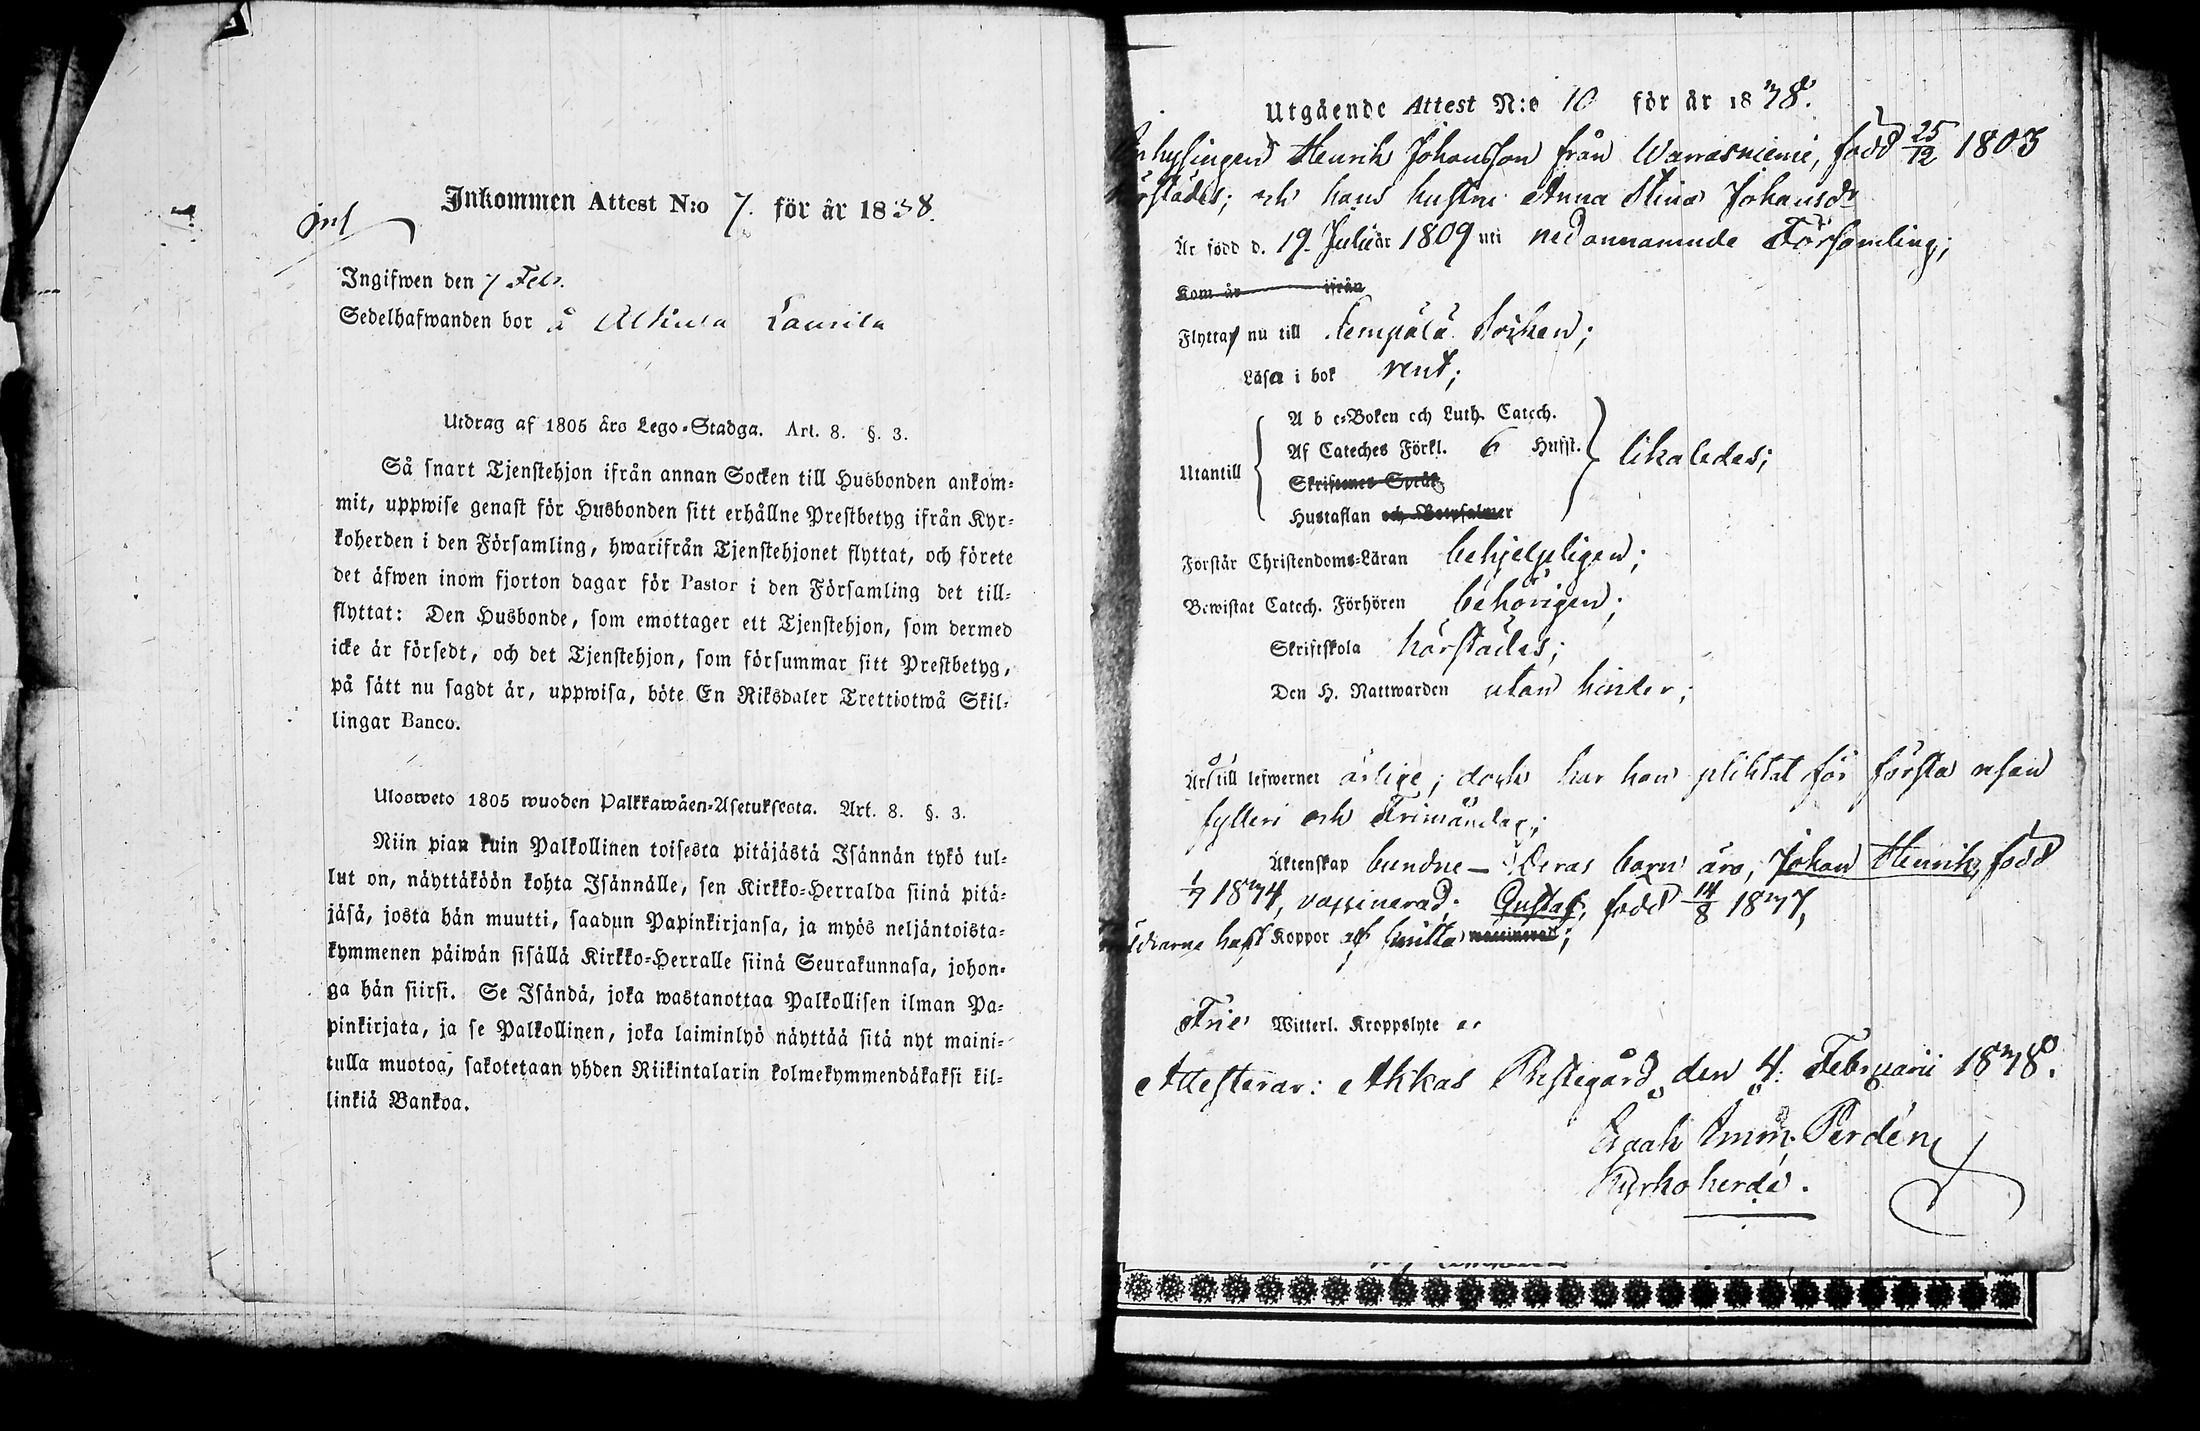 Inkommen Attest N:o 7. för år 1838.
Ingifwen den 7 Feb.
Sedelhafwanden bor å Alkula Laurila
Utdrag af 1805 års Lego-Stadga. Art. 8. §. 3.
Så snart Tjenstehjon ifrån annan Socken till Husbonden ankom-
mit, uppwise genast för Husbonden sitt erhållne Prestbetyg ifrån Kyr-
koherden i den Församling, hwarifrån Tjenstehjonet flyttat, och förete
det äfwen inom fjorton dagar för Pastor i den Församling det till-
flyttat: Den Husbonde, som emottager ett Tjenstehjon, som dermed
icke är försedt, och det Tjenstehjon, som försummar sitt Prestbetyg,
på sätt nu sagdt är, uppwisa, böte En Riksdaler Trettiotwå Skil-
lingar Banco.
Ulosweto 1805 wuoden Palkkawäen-Asetuksesta. Art. 8. §. 3.
Niin pian kuin Palkollinen toisesta pitäjästä Isännän tykö tul-
lut on, näyttäköön kohta Isännälle, sen Kirkko-Herralda siinä pitä-
jäsä, josta hän muutti, saadun Papinkirjansa, ja myös neljäntoista-
kymmenen päiwän sisällä Kirkko-Herralle siinä Seurakunnasa, johon-
ga hän siirsi. Se Isändä, joka wastanottaa Palkollisen ilman Pa-
pinkirjata, ja se Palkollinen, joka laiminlyö näyttää sitä nyt maini-
tulla muotoa, sakotetaan yhden Riikintalarin kolmekymmendäkaksi kil-
linkiä Bankoa.
Utgående Attest N:o 10 för år 1838.
Inhysingen Henrik Johansson från Warrasniemi, född 25/12 1803
härstädes; och hans hustru Anna Stina Johansdr
Är född d. 19. Julii år 1809 uti nedannämnde Församling;
Kom år ifrån
Flytta nu till Lempälä Socken;
Läsa i bok rent;
A b c-Boken och Luth. Catech.
Af Cateches Förkl. 6 Hufst.
Utantill likaledes;
Skriftenes Språk
Hustaflan och Botpsalmer
Förstår Christendoms-Läran behjelpligen;
Bewistat Catech. Förhören behörigen;
Skriftskola härstädes;
Den H. Nattwarden utan hinder;
Äro till lefwernet ärlige; dock har han pliktat för första resan
fylleri och Frimåndag;
Äktenskap bundne – Deras barn äro, Johan Henrik, född
1/7 1834, vaccinerad; Gustaf, född 14/8 1837,
haft Koppor af vaccinerad;
Frie Witterl. Kroppslyte
Attesterar: Akkas Prestegård den 4. Februarii 1838.
Isaak Imm. Perdén
Kyrkoherde.